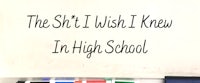 The Sh*t I Wish I Knew
In High School